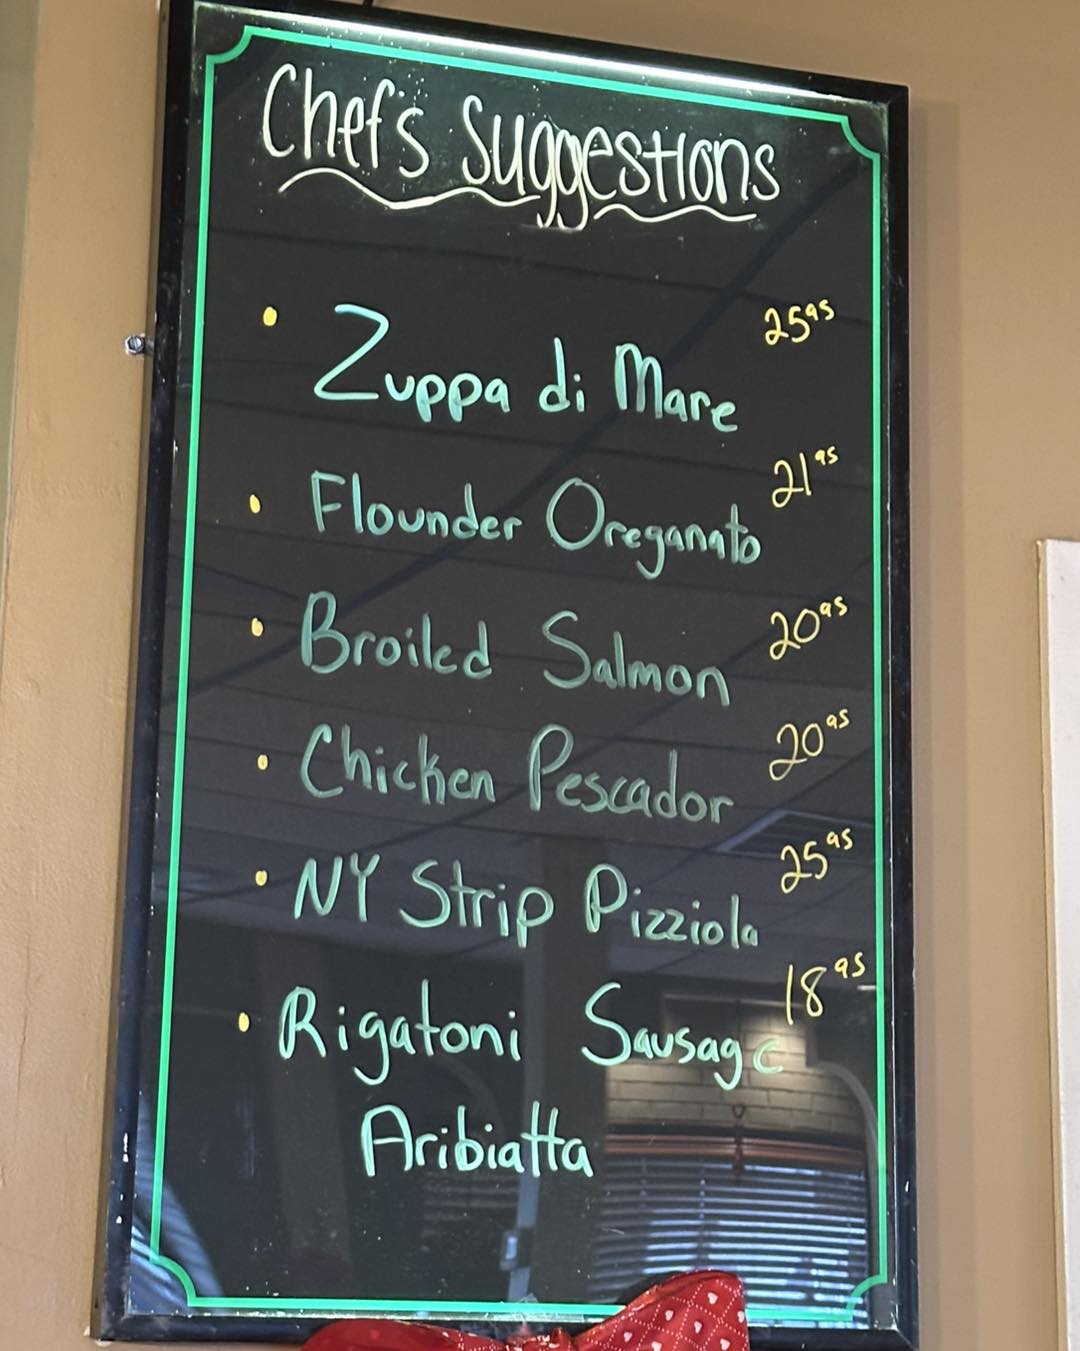 Chef's Suggestions
• Zuppa di Mare 25⁹⁵
• Flounder Oreganato 21⁹⁵
• Broiled Salmon 20⁹⁵
• Chicken Pescador 20⁹⁵
• NY Strip Pizziola 25⁹⁵
• Rigatoni Sausage 18⁹⁵
Aribiatta